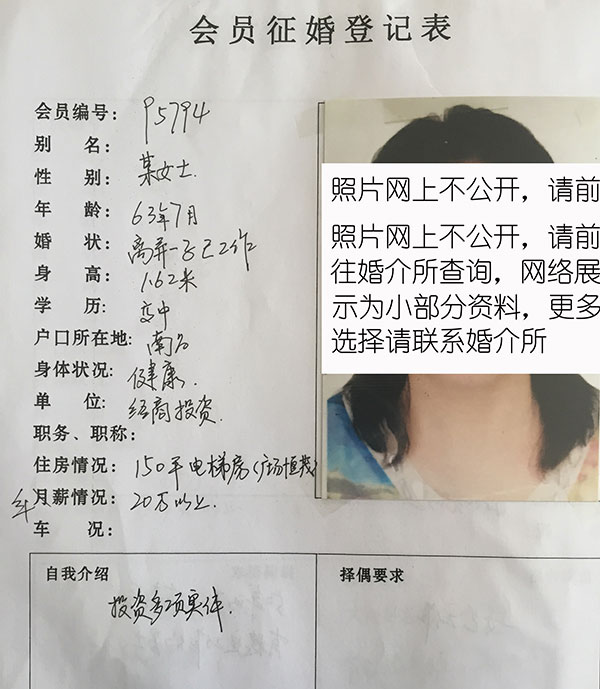 会员征婚登记表
会员编号: P5794
别 名:
性 别: 某女士.
年 龄: 63年7月
婚 状: 离弃一子已工作
身 高: 1.62米
学 历: 高中
户口所在地: 南昌
身体状况: 健康.
单 位: 经商投资.
职务、职称:
住房情况: 150平电梯房(广场恒茂)
年月薪情况: 20万以上.
车 况:
照片网上不公开，请前
照片网上不公开，请前
往婚介所查询，网络展
示为小部分资料，更多
选择请联系婚介所
自我介绍
投资多项实体.
择偶要求